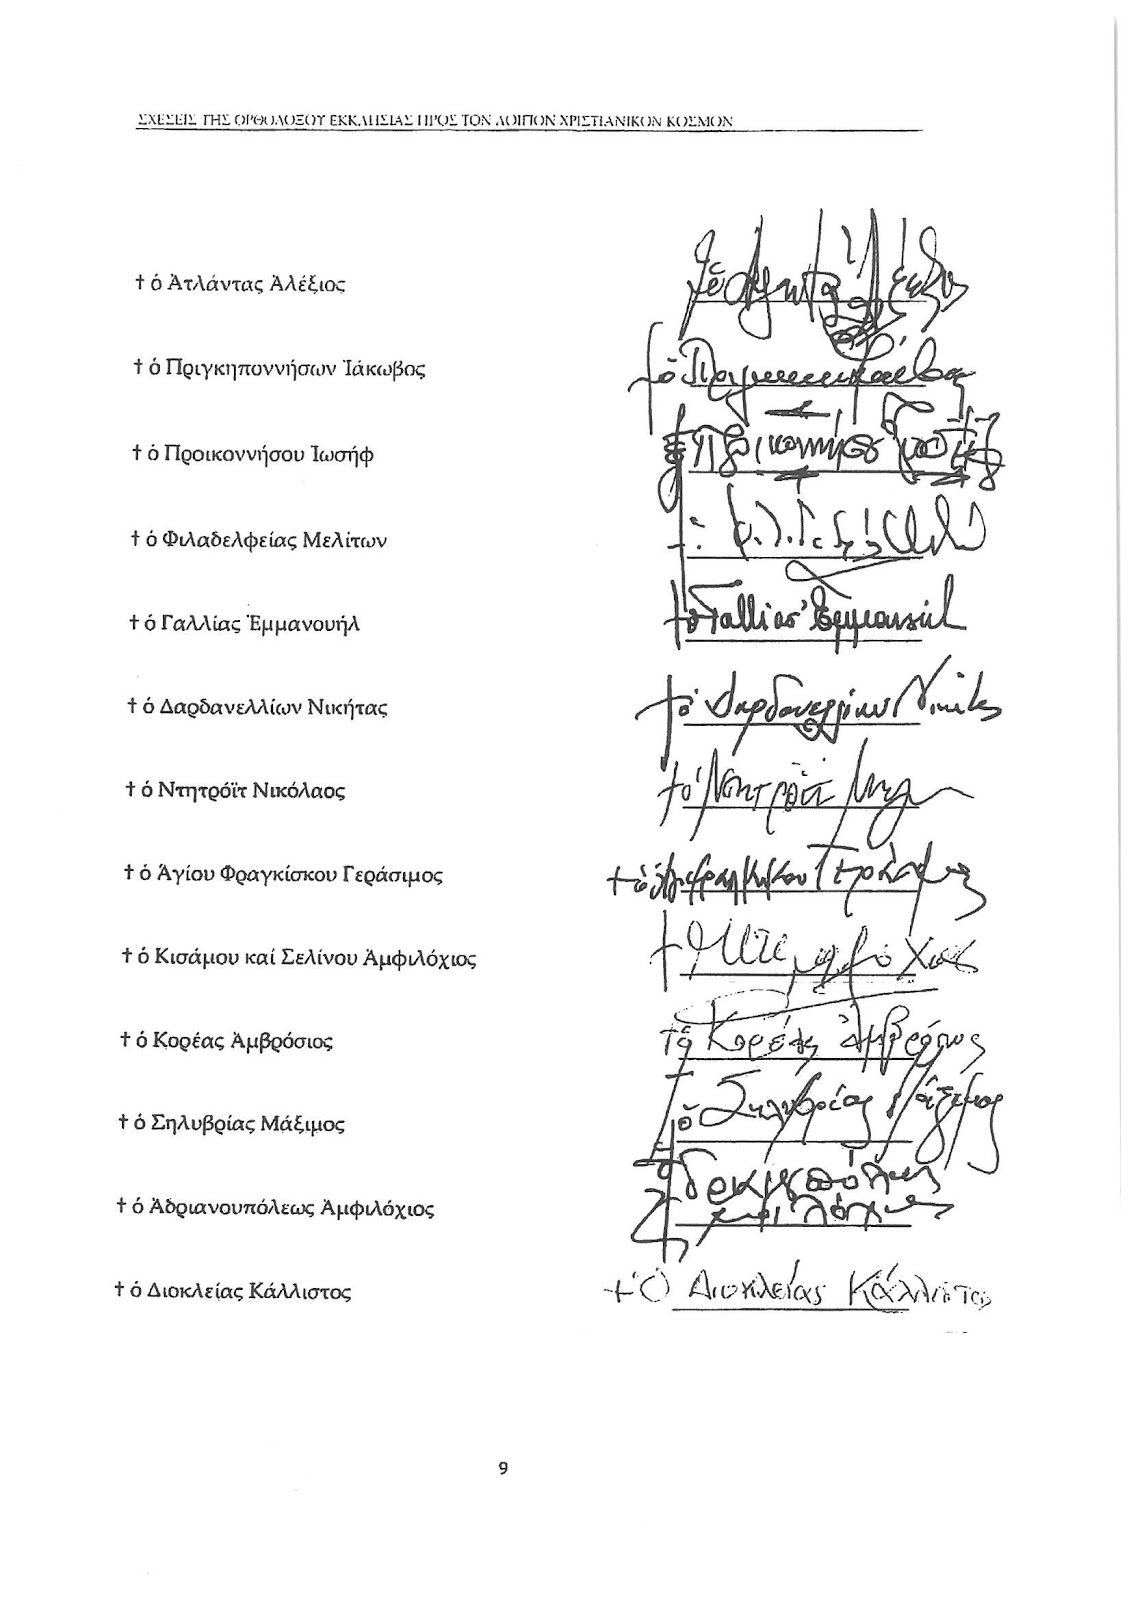 ΣΧΕΣΕΙΣ ΤΗΣ ΟΡΘΟΔΟΞΟΥ ΕΚΚΛΗΣΙΑΣ ΠΡΟΣ ΤΟΝ ΛΟΙΠΟΝ ΧΡΙΣΤΙΑΝΙΚΟΝ ΚΟΣΜΟΝ
† ὁ Ἀτλάντας Ἀλέξιος
† ὁ Πριγκηποννήσων Ἰάκωβος
† ὁ Προικοννήσου Ἰωσήφ
† ὁ Φιλαδελφείας Μελίτων
† ὁ Γαλλίας Ἐμμανουήλ † ὁ Γαλλίας Ἐμμανουήλ
† ὁ Δαρδανελλίων Νικήτας † ὁ Δαρδανελλίων Νικήτας
† ὁ Ντητρόϊτ Νικόλαος † ὁ Ντητρόϊτ
† ὁ Ἁγίου Φραγκίσκου Γεράσιμος
† ὁ Κισάμου καί Σελίνου Ἀμφιλόχιος
† ὁ Κορέας Ἀμβρόσιος † ὁ Κορέας Ἀμβρόσιος
† ὁ Σηλυβρίας Μάξιμος † ὁ Σηλυβρίας Μάξιμος
† ὁ Ἀδριανουπόλεως Ἀμφιλόχιος
† ὁ Διοκλείας Κάλλιστος † Ὁ Διοκλείας Κάλλιστος
9